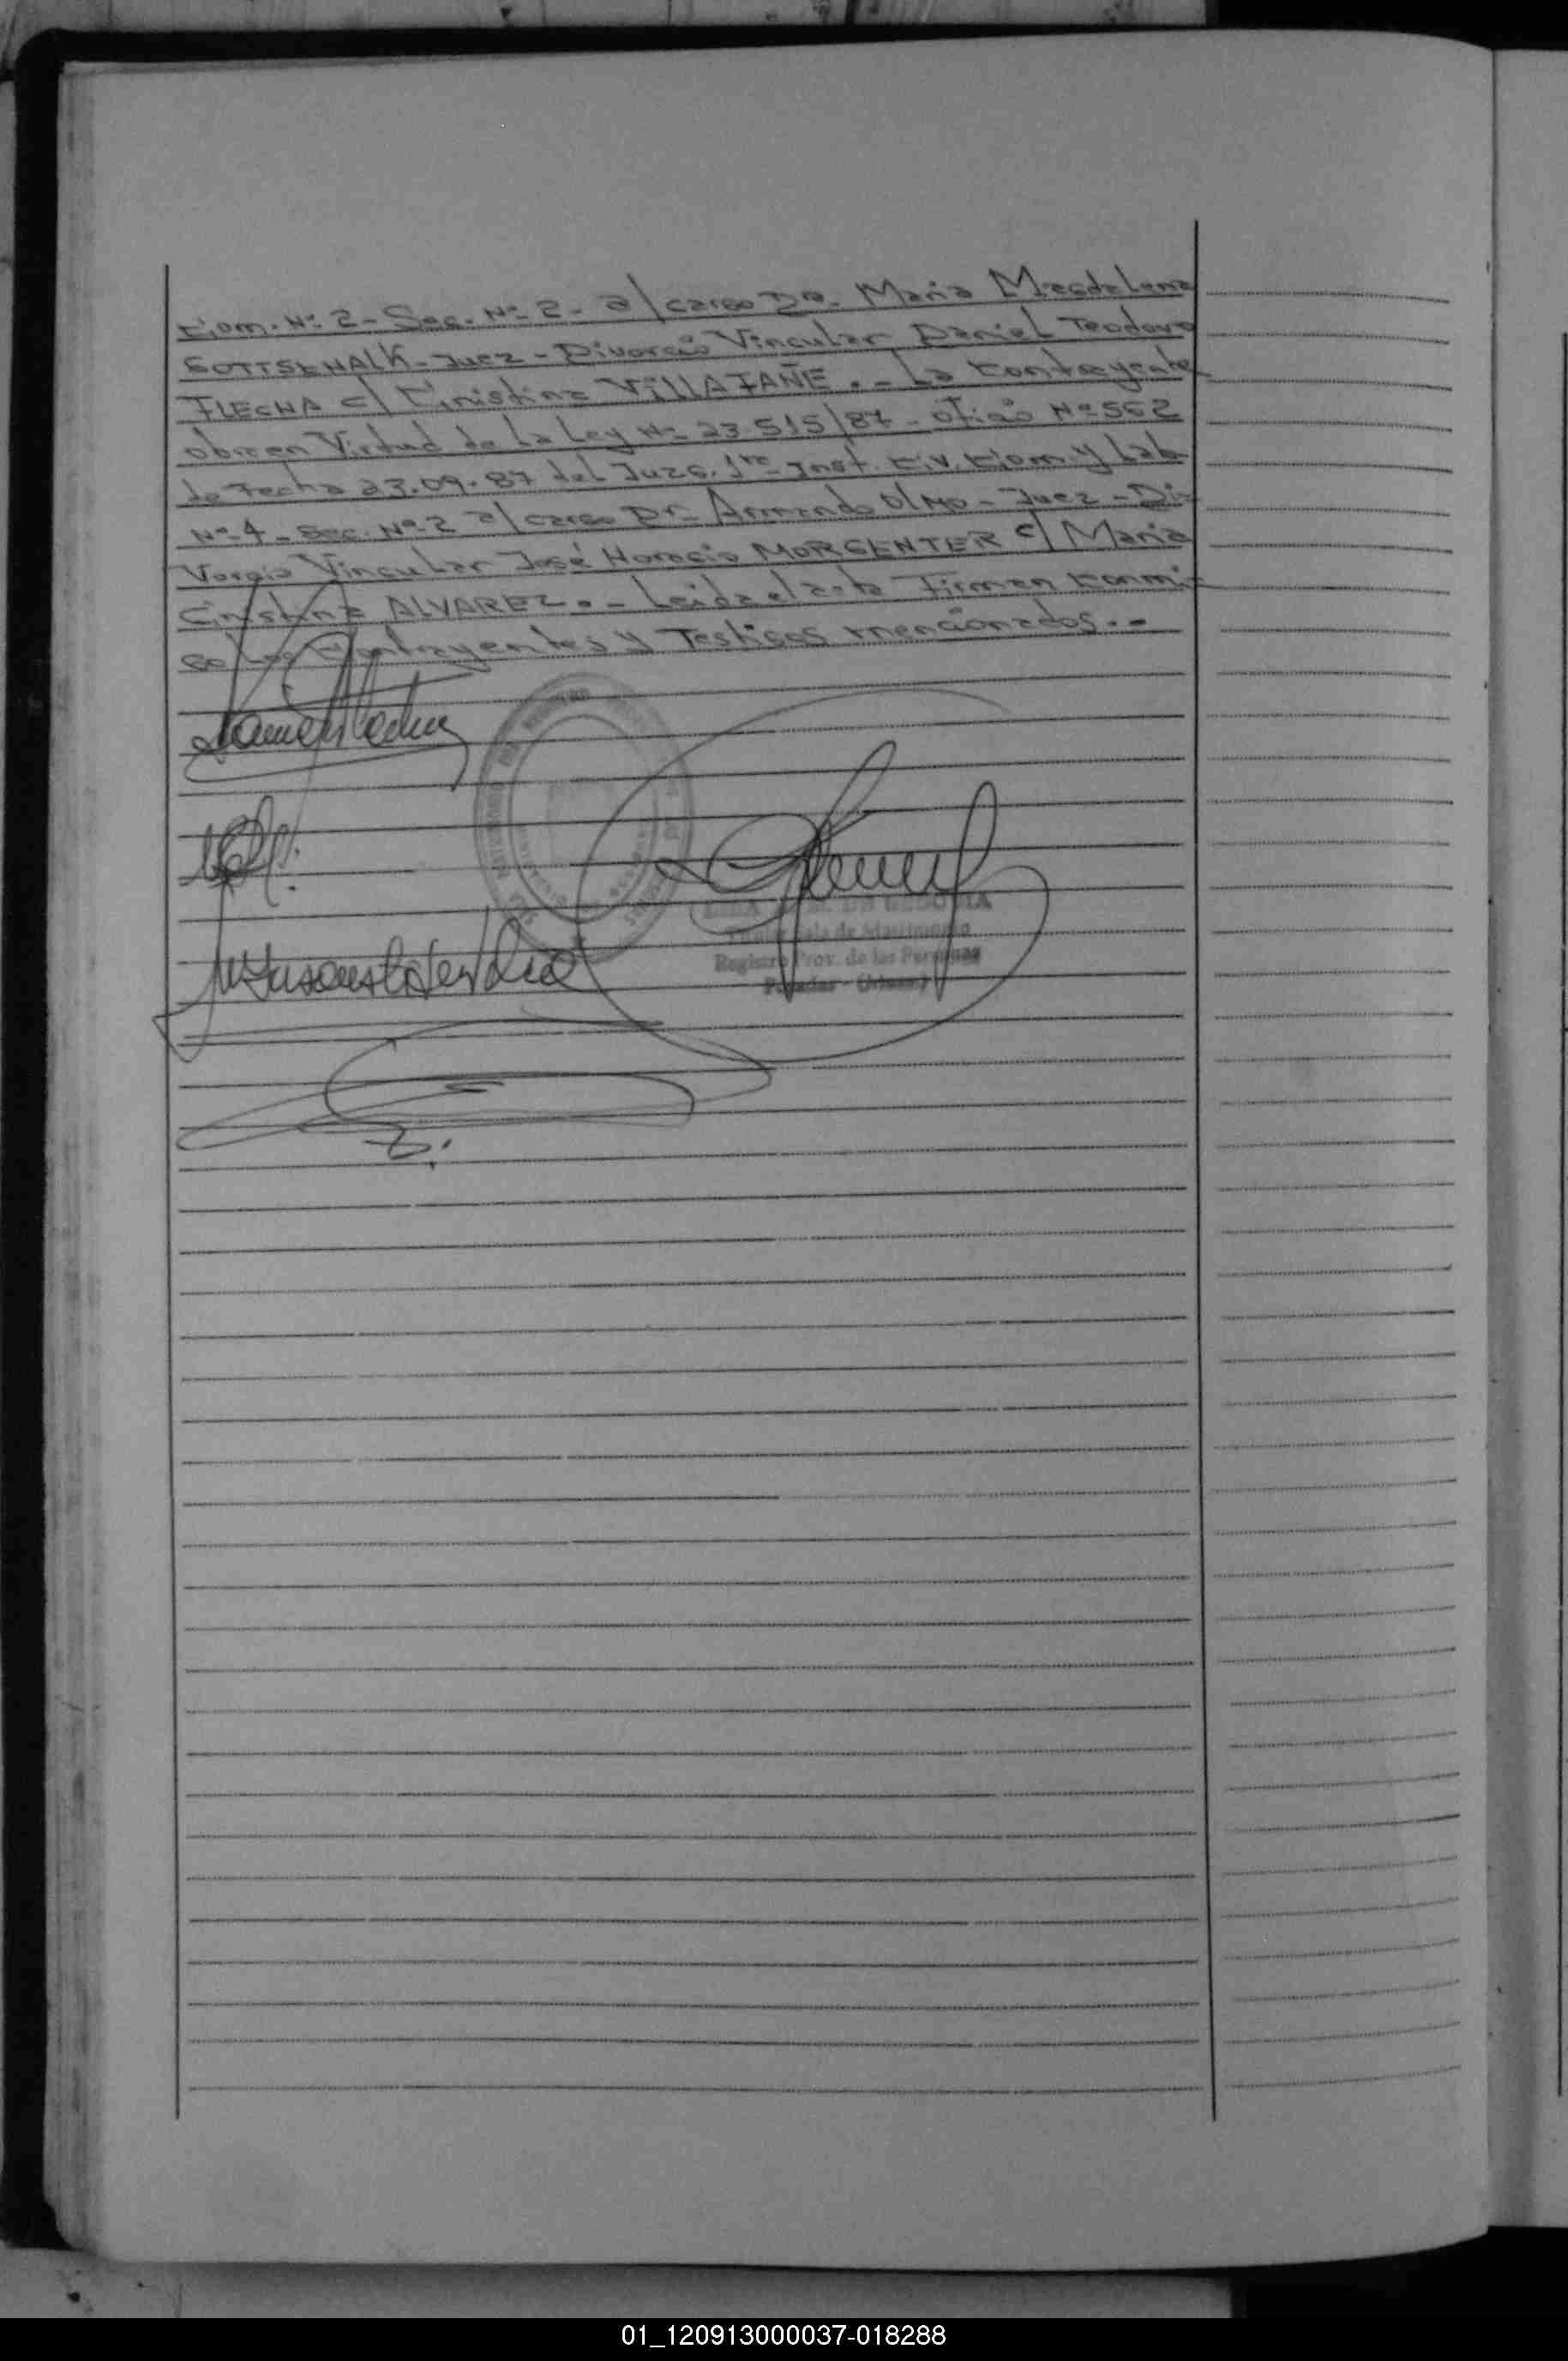 Com. Nº 2 - Sec. Nº 2 - a/cargo Dra. Maria Magdalena
GOTTSCHALK - Juez - Divorcio Vincular Daniel Teodoro
FLECHA c/ Cristina VILLAFAÑE . - La Contrayente
obra en Virtud de la Ley Nº 23 515/87 - oficio Nº 562
de Fecha 23.09.87 del Juzg. 1ra Inst. Civ. Com. y Lab.
Nº 4 - Sec. Nº 2 a/cargo Dr. Armando Olmo - Juez - Di-
Vorcio Vincular José Horacio MORGENTER c/ Maria
Cristina ALVAREZ . - Leida el acta Firman Conmi-
go los Contrayentes y Testigos mencionados . -
DE
Titular Sala de Matrimonio
Registro Prov. de las Personas
Posadas - (Mnes.)
01_120913000037-018288